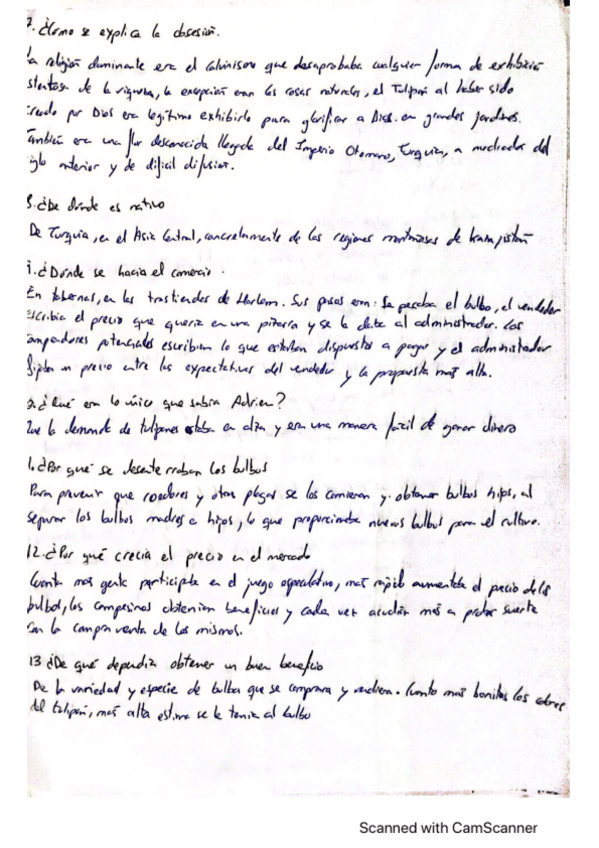 7. ¿Como se explica la obsesión.
La religión dominante era el calvinismo que desaprobaba cualquier forma de exhibición
ostentosa de la riqueza, la excepción eran las cosas naturales, el Tulipan al haber sido
creado por Dios era legitimo exhibirlo para glorificar a Dios. en grandes jardines.
También era una flor desconocida llegada del Imperio Otomano, Turquia, a mediados del
siglo anterior y de dificil difusion.
8. ¿De donde es nativo
De Turquia, en el Asia Central, concretamente de las regiones montañosas de
9. ¿Donde se hacia el comercio.
En tabernas, en las trastiendas de Harlem. Sus pasos eran: Se pesaba el bulbo, el vendedor
escribia el precio que queria en una pizarra y se la daba al administrador. Los
compradores potenciales escribian lo que estaban dispuestos a pagar y el administrador
fijaba un precio entre las expectativas del vendedor y la propuesta más alta.
¿Qué era lo único que sabia Adrien?
Que la demanda de tulipanes estaba en alza y era una manera fácil de ganar dinero
¿Por qué se desenterraban los bulbos
Para prevenir que roedores y otras plagas se los comieran y obtener bulbos hijos, al
separar los bulbos madres e hijos, lo que proporcionaba nuevos bulbos para el cultivo.
12. ¿Por qué crecia el precio en el mercado
Cuanta mas gente participaba en el juego especulativo, mas rápido aumentaba el precio de los
bulbos, los campesinos obtenian beneficios y cada vez acudian más a probar suerte
con la compra venta de los mismos.
13 ¿De qué dependia obtener un buen beneficio
De la variedad y especie de bulbo que se comprara y vendiera. Cuanto más bonitos los colores
del tulipán, más alta estima se le tenia al bulbo
Scanned with CamScanner